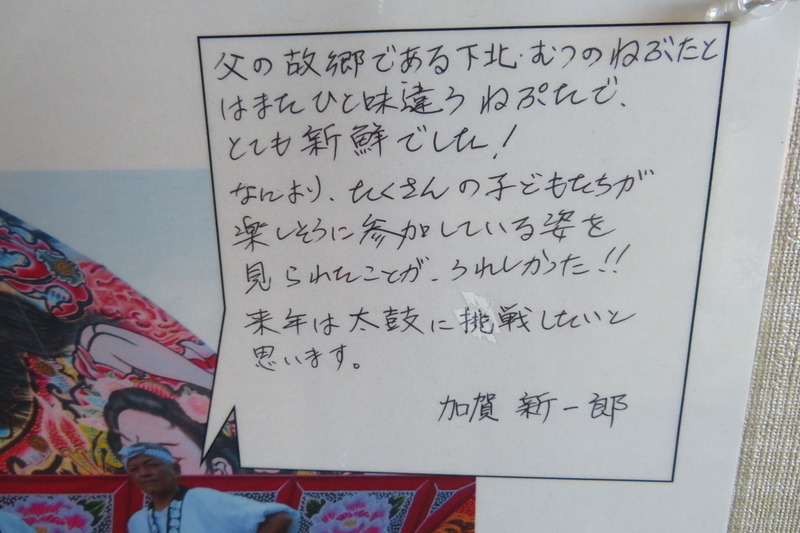 父の故郷である下北・むつのねぶたと
はまたひと味違うねぷたで、
とても新鮮でした!
なにより、たくさんの子どもたちが
楽しそうに参加している姿を
見られたことが、うれしかった!!
来年は太鼓に挑戦したいと
思います。
加賀 新一郎